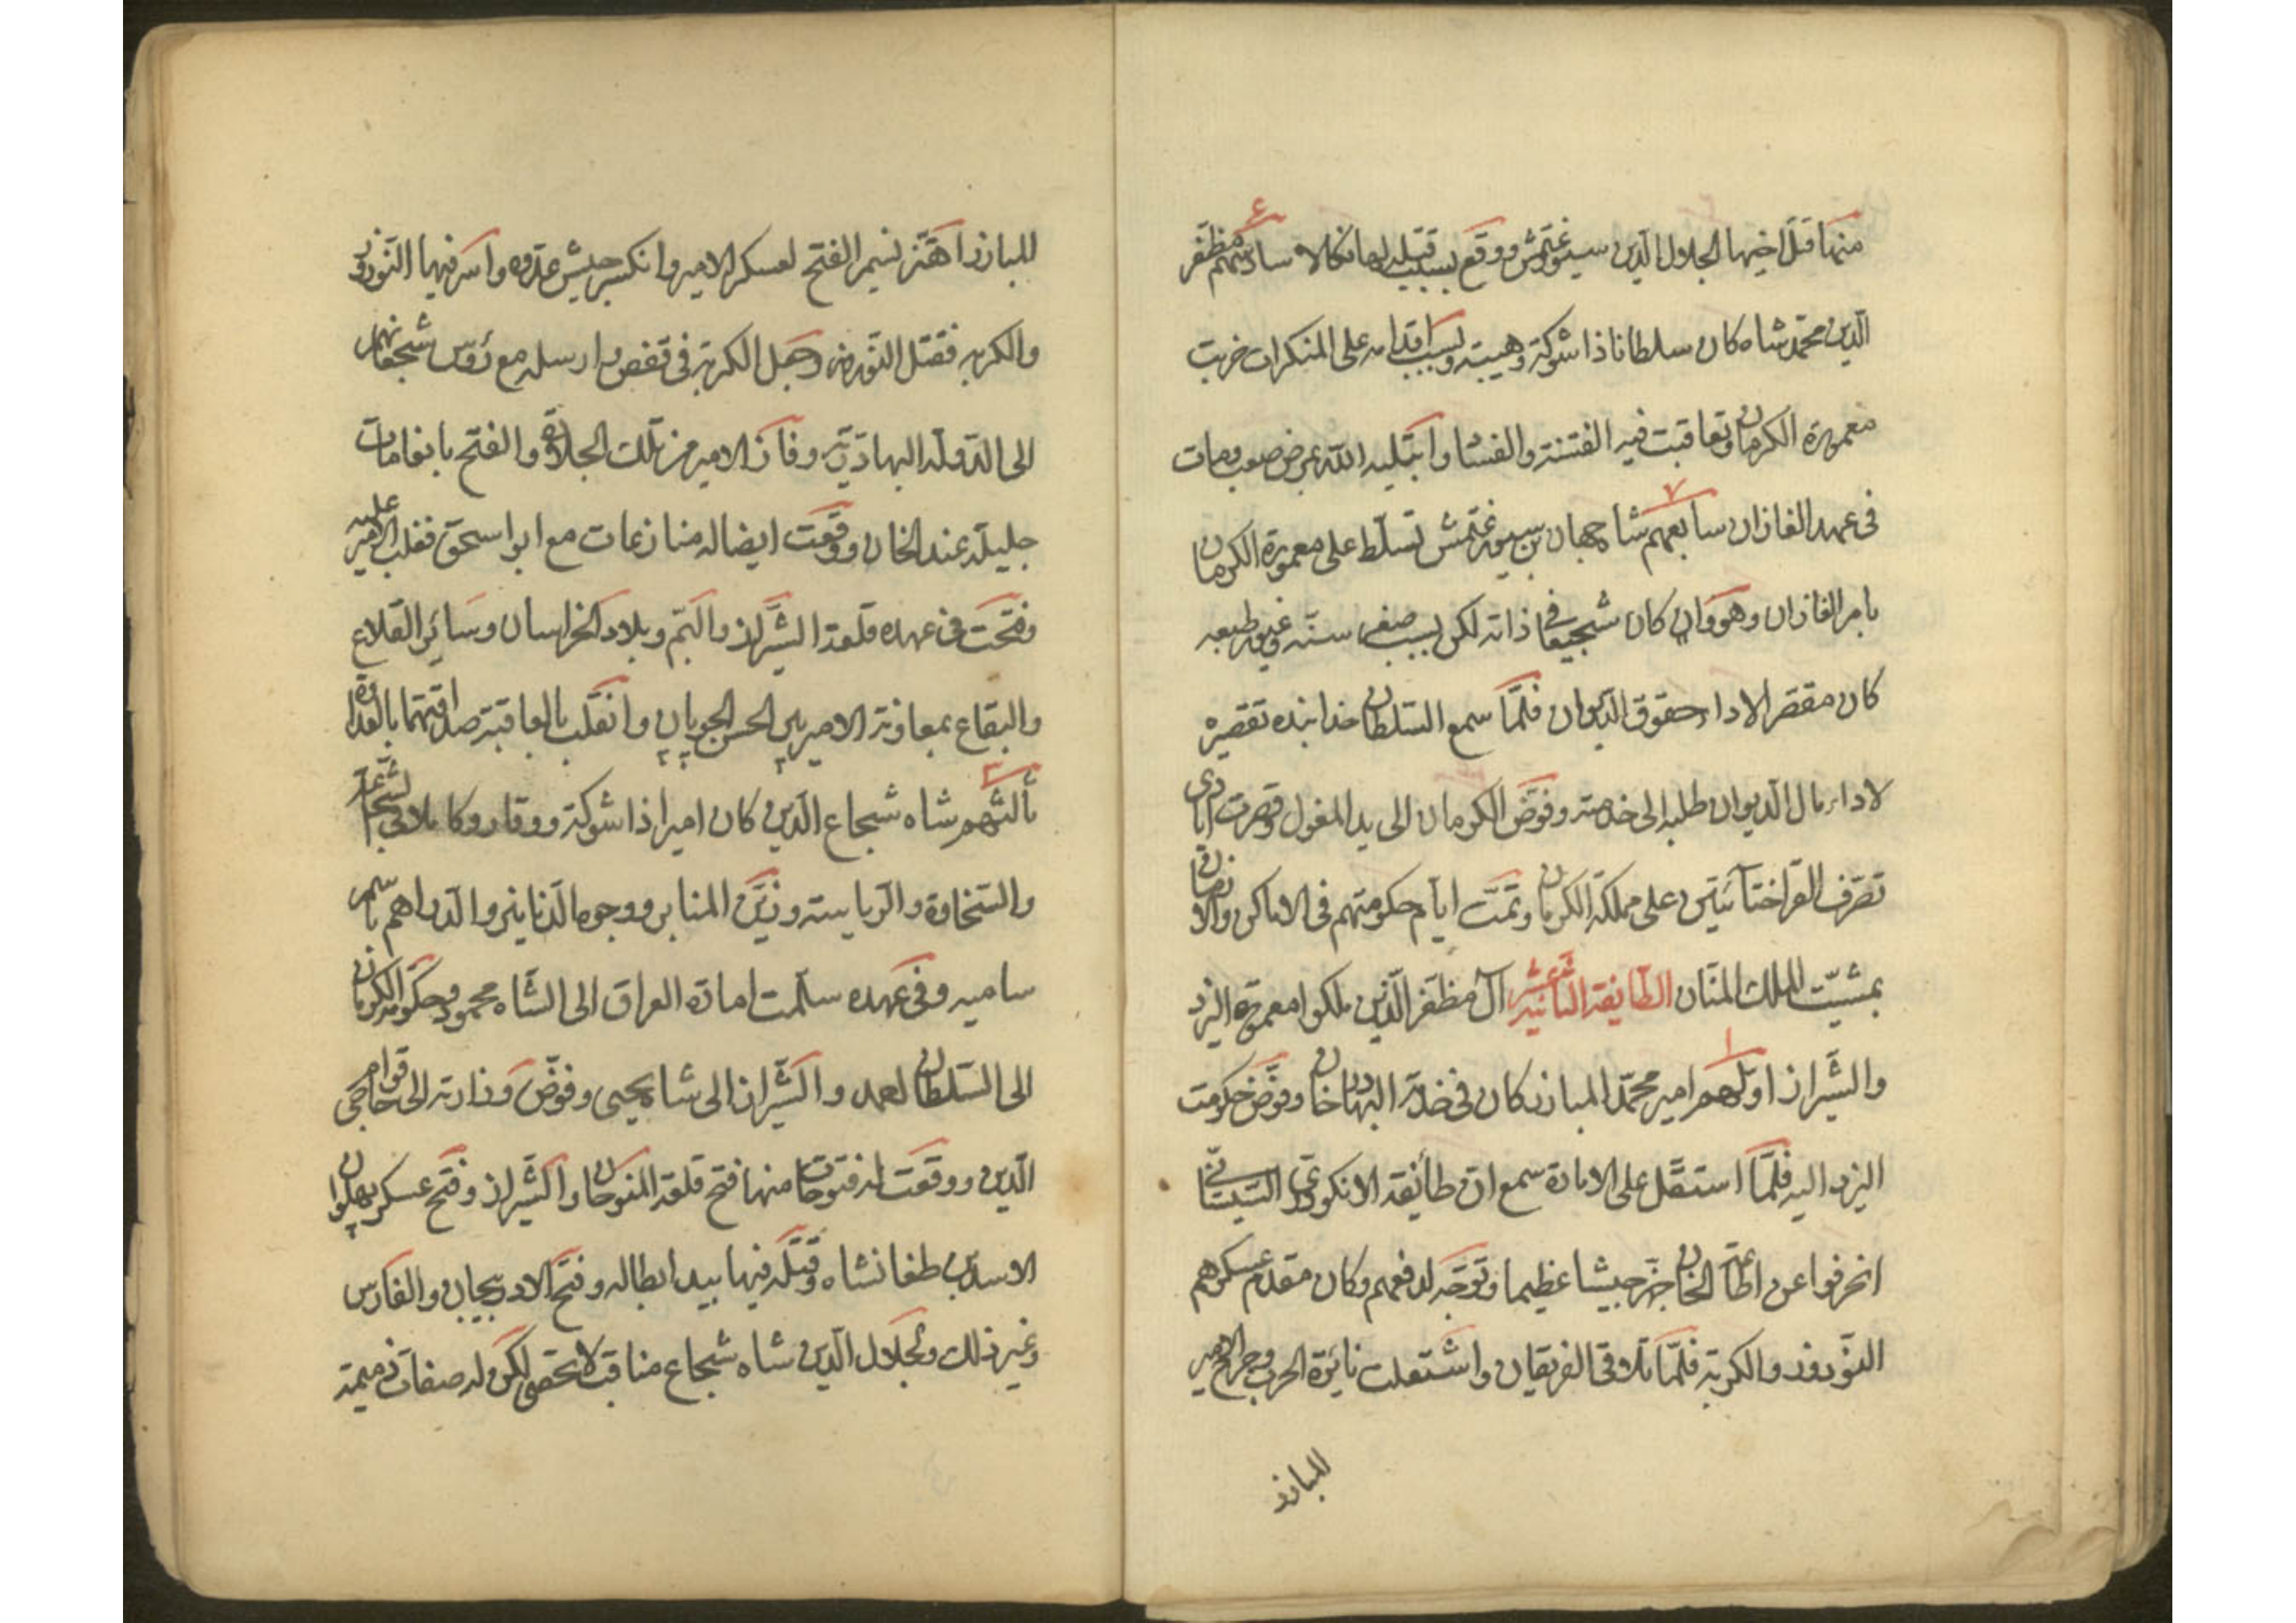 منها قتل اخيها الجلال الدين سيورغتمش ووقع بسبب قتله لها نكالا سادسهم مظفر
الدين محمد شاه كان سلطانا ذا شوكة وهيبة وبسبب اقدامه على المنكرات خربت
معمورة الكرمان وتعاقبت فيه الفتنة والفساد وابتليه الله بمرض صعب ومات
في عهد الغازان سابعهم شاه جهان بن سيورغتمش تسلط على معمورة الكرمان
بامر الغازان وهو وان كان شجيعا في ذاته لكن بسبب صغر سنه وغرور طبعه
كان مقصر الاداء حقوق الديوان فلما سمع السلطان خدابنده تقصيره
لاداء مال الديوان طلبه الى خدمته وفوض الكرمان الى يد المغول وقصرت ايادى
تصرف القراختائيين على مملكة الكرمان وتمت ايام حكومتهم في الاماكن والازمان
بمشيت الملك المنان الطايفة الثانية عشر آل مظفر الذين ملكوا معمورة اليزد
والشيراز اولهم امير محمد المبارز كان في خدمة البهادر خان وفوض حكومت
اليزد اليه فلما استقل على الامارة سمع ان طائفة الانكودرى السيستانى
انحرفوا عن اطاعة الخان جهز جيشا عظيما وتوجه لدفعهم وكان مقدم عسكرهم
النوروز والكربة فلما تلاقى الفريقان واشتعلت نايرة الحرب وجرح الامير
للبارز
للبارز اهتز نسيم الفتح لعسكر الامير وانكسر جيش عدوه واسر فيها النوروز
والكربه فقتل النوروز وجعل الكربة في قفص وارسله مع رؤس شجعانهم
الى الدولة البهادرية وفاز الامير من تلك الجلادة والفتح بانعامات
جليلة عند الخان ووقعت ايضا له منازعات مع ابو اسحق فغلب الامير عليه
وفتحت في عهده قلعة الشيراز والبم وبلاد الخراسان وسائر القلاع
والبقاع بمعاونة الامير پير الحسن الچوپان وانقلب بالعاقبة صداقتهما بالعداوة
ثالثهم شاه شجاع الدين كان اميرا ذا شوكة ووقار وكاملا في الشجاعة
والسخاوة والرياسة وزين المنابر ووجوه الدنانير والدراهم باسم
ساميه وفي عهده سلمت امارة العراق الى الشاه محمود وحكومة الكرمان
الى السلطان احمد والشيراز الى شاه يحيى وفوض وزارته الى حاجى قوام
الدين ووقعت له فتوحات منها فتح قلعة المنوجان والشيراز وفتح عسكر پهلوان
الاسد بن طغانشاه وقتله فيها بيد ابطاله وفتح الادربيجان والفارس
وغير ذلك ولجلال الدين شاه شجاع مناقب لا تحصى لكن له صفات ذميمة